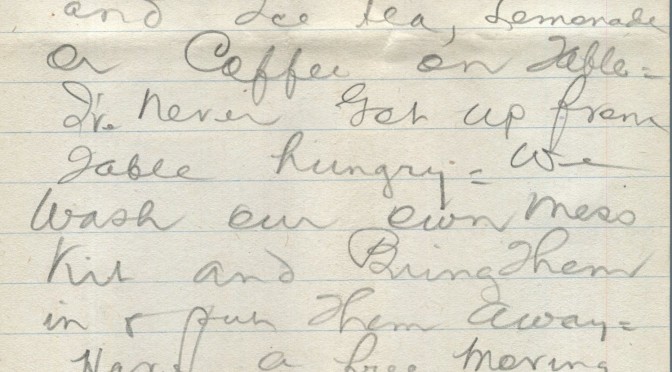 and Ice tea, Lemonade
or Coffee on Table =
I've never Got up from
Table hungry = We
Wash our own Mess
Kit and Bring Them
in & put Them away =
Have a free moving